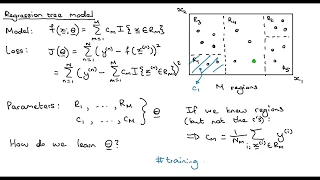 Regression tree model
Model: f(x; θ) = Σ_{m=1}^{M} c_m I{x ∈ R_m}
Loss: J(θ) = Σ_{n=1}^{N} (y^(n) − f(x^(n)))²
= Σ_{n=1}^{N} (y^(n) − Σ_{m=1}^{M} c_m I{x^(n) ∈ R_m})²
Parameters: R_1, ..., R_M } θ
c_1, ..., c_M
How do we learn θ?
x_2
R_3 R_2
R_1
R_5
x_1
c_1
M regions
If we knew regions
(but not the c's):
⇒ c_m = 1/N_m Σ_{i: x^(i) ∈ R_m} y^(i)
#training